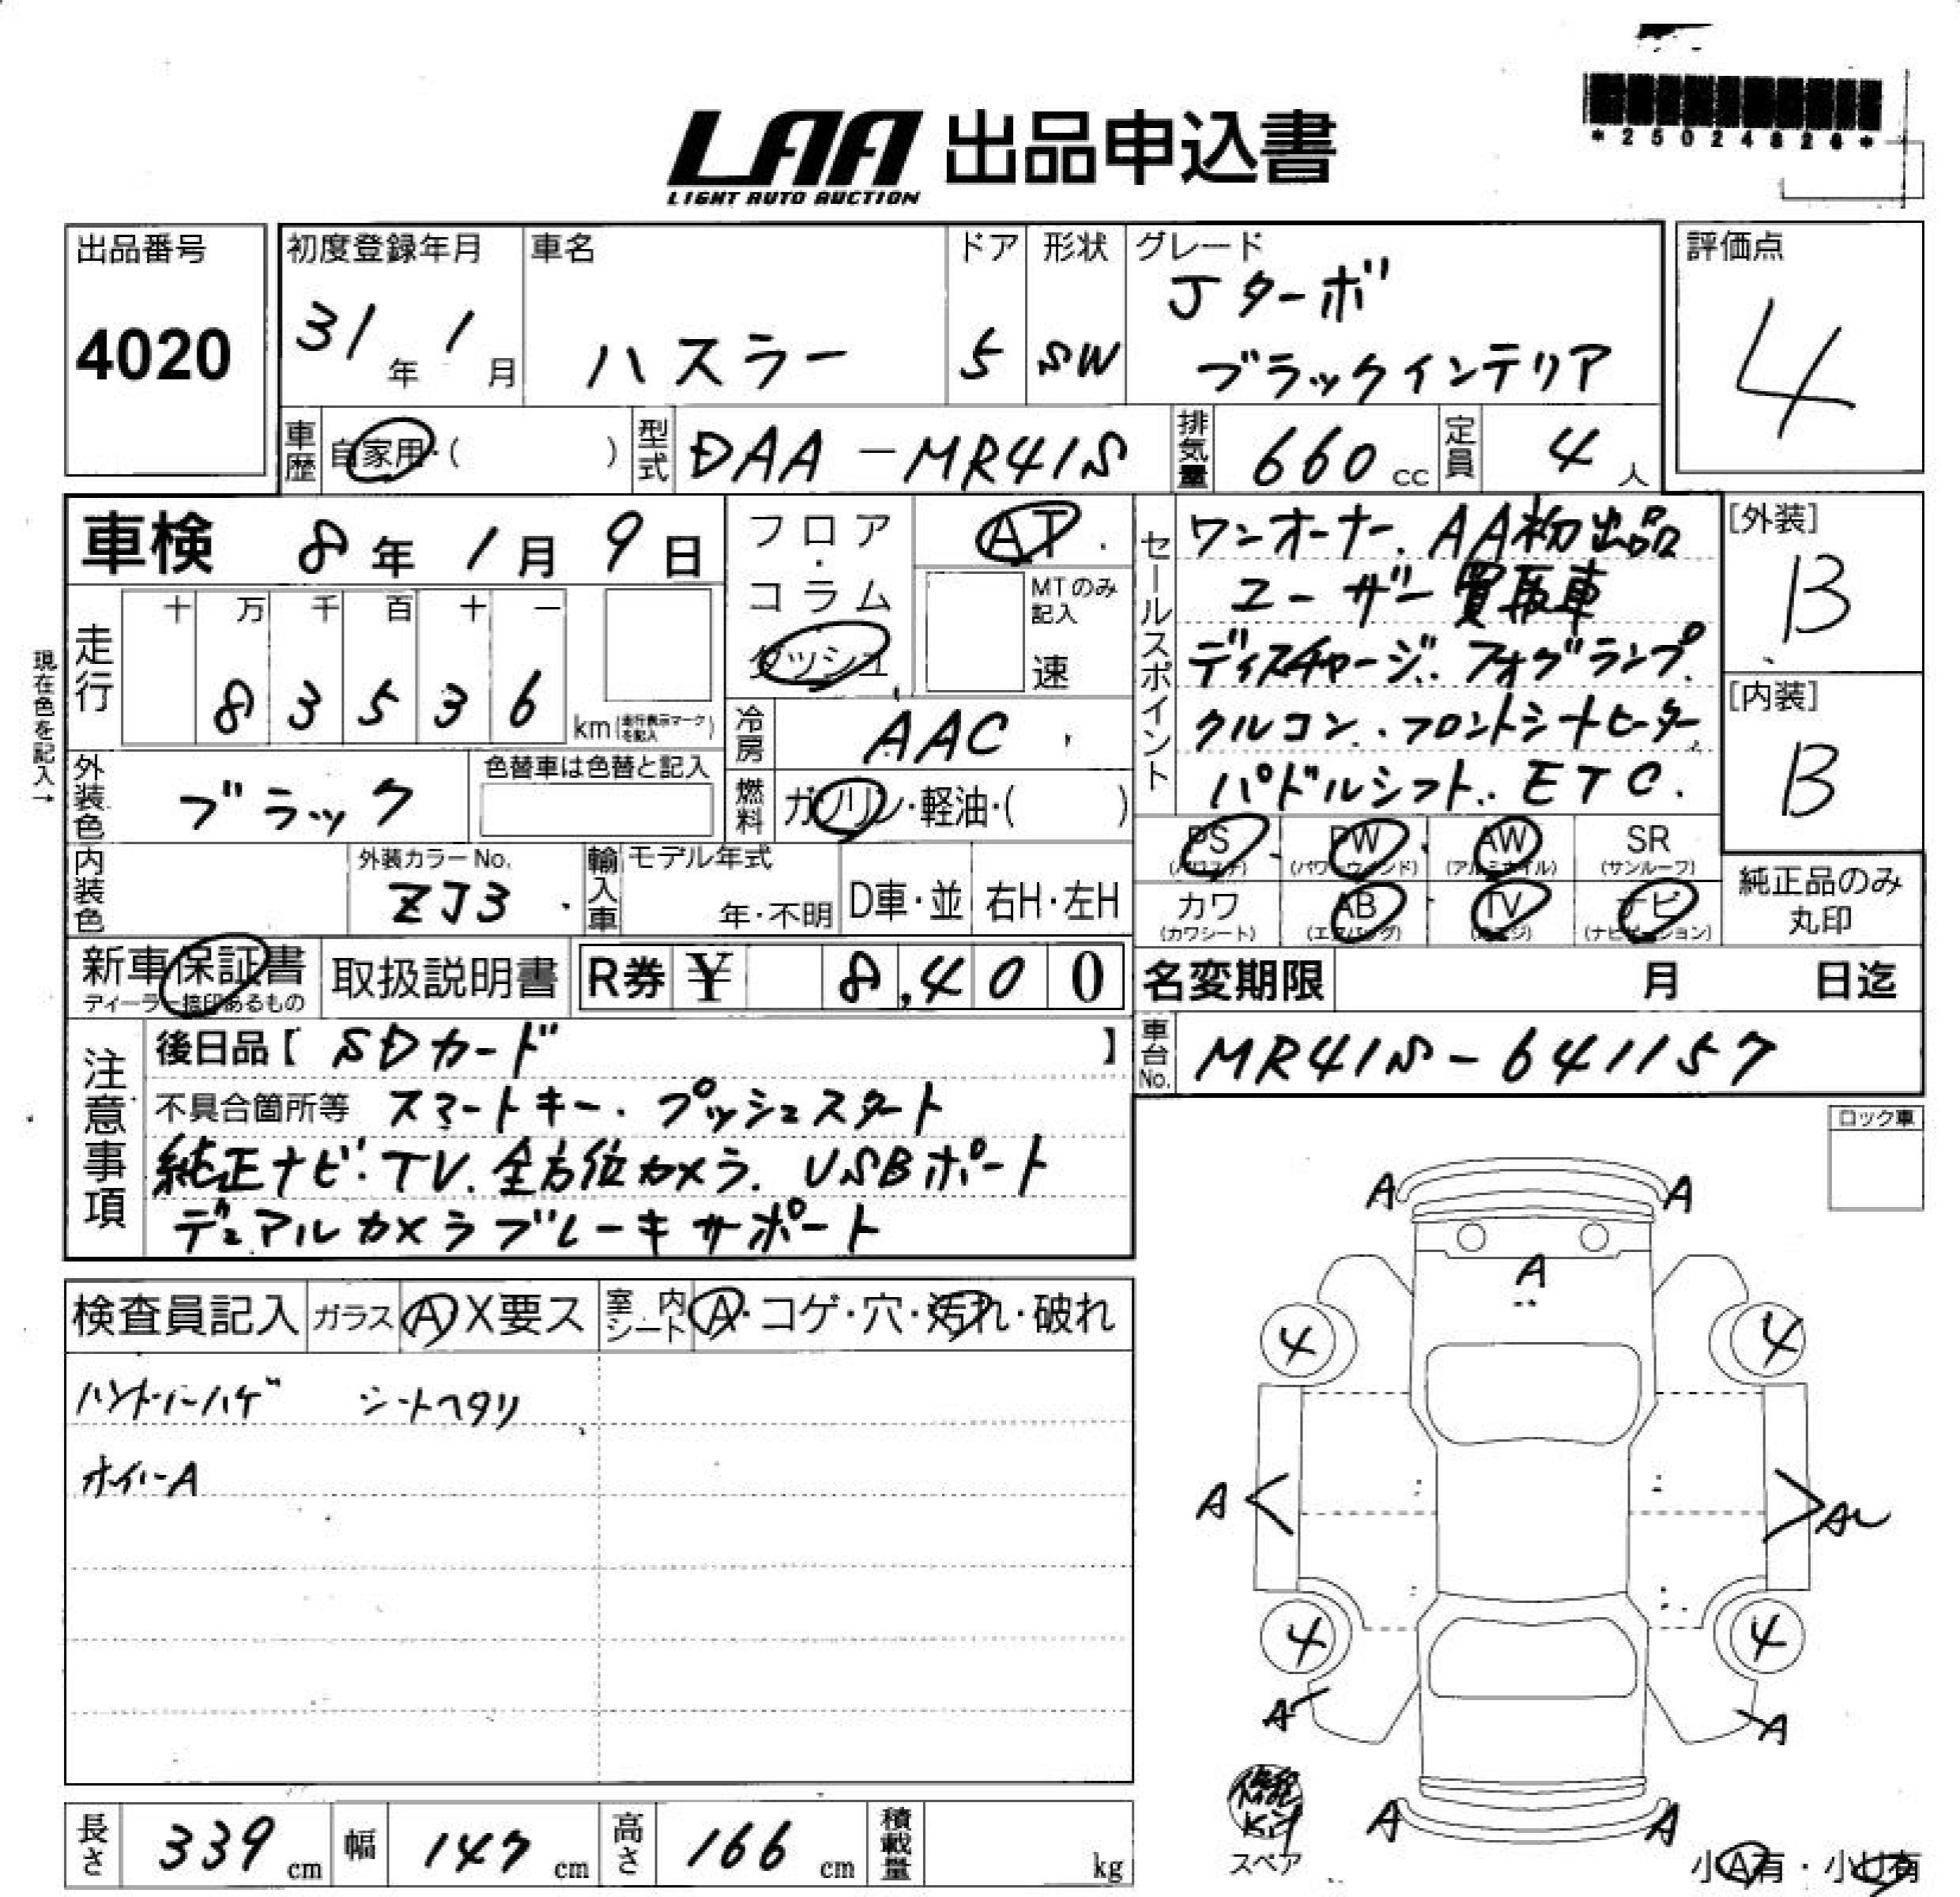 *25024826*
LAA 出品申込書
LIGHT AUTO AUCTION
出品番号
4020
初度登録年月
31年1月
車名
ハスラー
ドア
5
形状
SW
グレード
Jターボ
ブラックインテリア
評価点
4
車歴 自家用・( )
型式 DAA-MR41S
排気量 660 cc
定員 4人
車検 8年1月9日
フロア・コラム
ダッシュ
AT
MTのみ記入
速
セールスポイント
ワンオーナー、AA初出品
ユーザー買取車
ディスチャージ、フォグランプ、
クルコン、フロントシートヒーター
パドルシフト、ETC.
[外装]
B
[内装]
B
現在色を記入→
走行
十 万 千 百 十 一
8 3 5 3 6
km(走行表示マークを記入)
冷房 AAC
燃料 ガソリン・軽油・( )
外装色 ブラック
色替車は色替と記入
内装色
外装カラーNo.
ZJ3
輸入車
モデル年式
年・不明
D車・並
右H・左H
PS (パワステ)
PW (パワーウィンド)
AW (アルミホイル)
SR (サンルーフ)
カワ (カワシート)
AB (エアバッグ)
TV (テレビジ)
ナビ (ナビゲーション)
純正品のみ
丸印
新車保証書
ディーラー捺印あるもの
取扱説明書
R券 ¥ 8,400
名変期限 月 日迄
車台No. MR41S-641157
注意事項
後日品【 SDカード 】
不具合箇所等 スマートキー、プッシュスタート
純正ナビ・TV、全方位カメラ、USBポート
デュアルカメラブレーキサポート
ロック車
検査員記入
ガラス A X要ス
室内シート A・コゲ・穴・汚れ・破れ
ハンドルハゲ シートヘタリ
ホイールA
A A
A
4 4
A A
4 4
A A
A A
修理
Kit
スペア
小A有・小U有
長さ 339 cm
幅 147 cm
高さ 166 cm
積載量 kg